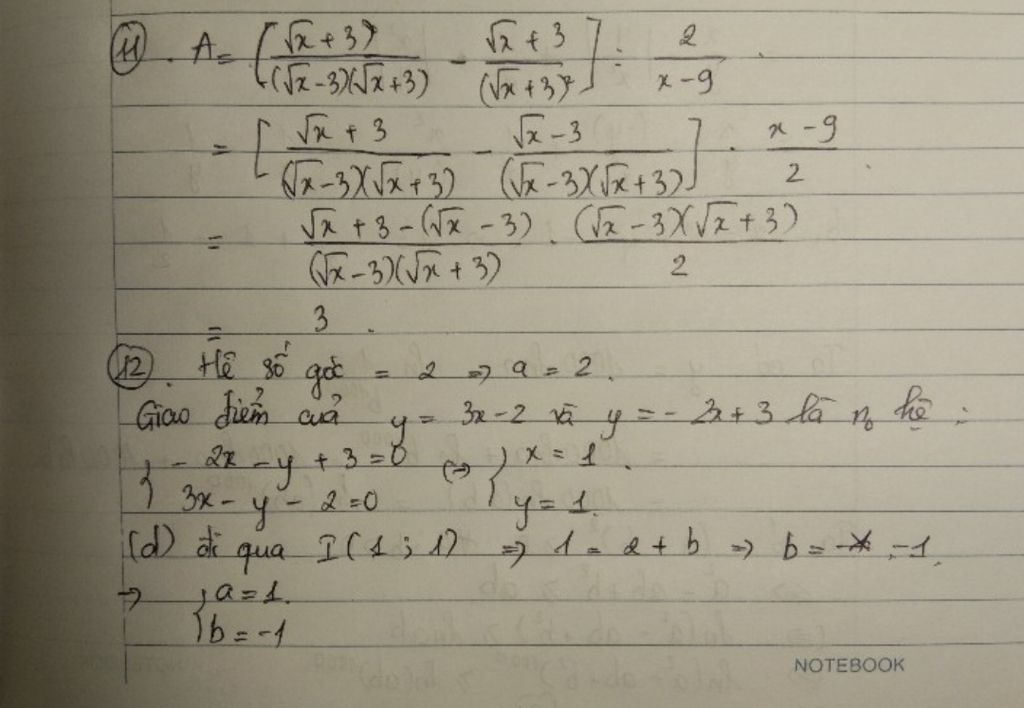 11. A = [(√x + 3)/((√x - 3)(√x + 3)) - (√x + 3)/((√x + 3)²)] : 2/(x - 9) .
= [(√x + 3)/((√x - 3)(√x + 3)) - (√x - 3)/((√x - 3)(√x + 3))] . (x - 9)/2 .
= (√x + 3 - (√x - 3))/((√x - 3)(√x + 3)) . ((√x - 3)(√x + 3))/2
= 3 .
12. Hệ số góc = 2 => a = 2.
Giao điểm của y = 3x - 2 và y = - 2x + 3 là n₀ hệ :
{ - 2x - y + 3 = 0 (=> { x = 1 .
3x - y - 2 = 0 y = 1.
(d) đi qua I(1 ; 1) => 1 = 2 + b => b = -1.
=> { a = 1.
b = -1
NOTEBOOK